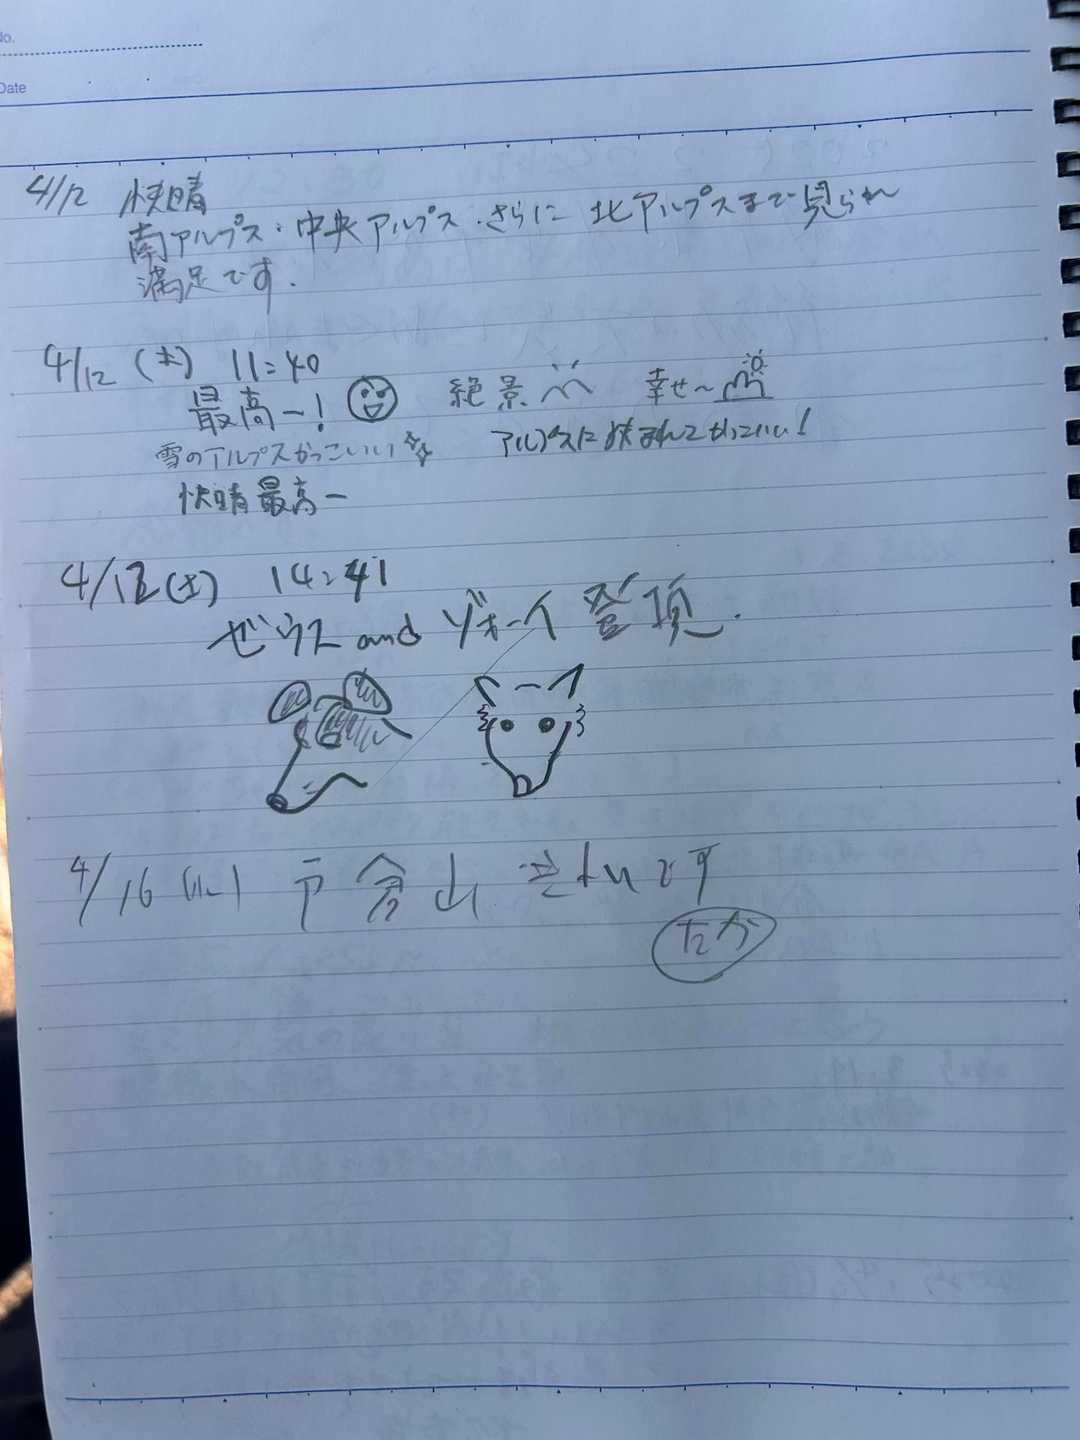 No.
Date
4/12 快晴
南アルプス・中央アルプス・さらに 北アルプスまで見られ
満足です.
4/12 (土) 11:40
最高ー! 絶景 幸せ〜
雪のアルプスかっこいい アルプスに挟まれてかっこいい!
快晴最高ー
4/12(土) 14:41
ゼウス and ヴォーイ 登頂.
4/16 戸倉山 きれいです